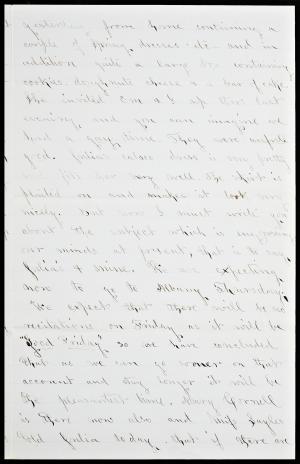 yesterday from home containing a
couple of Spring dresses etc and in
addition quite a large box containing
cookies, doughnuts cheese & a bar of cake.
She invited Em & I up there last
evening, and you can imagine we
had a gay time. They were
good. Julia's calico dress is very pretty
and fits her very well. The shirt is
plaited on and makes it look very
nicely. But now I must write you
about the subject which is engrossing
our minds at present, that is to say
Julia's & mine. We are expecting
now to go to Albany Thursday.
We expect that there will be no
recitations on Friday as it will be
"Good Friday" so we have concluded
that as we can go sooner on that
account and stay longer it will be
the pleasantest time. Mary Cornell
is there now also and Miss
told Julia today, that if there are